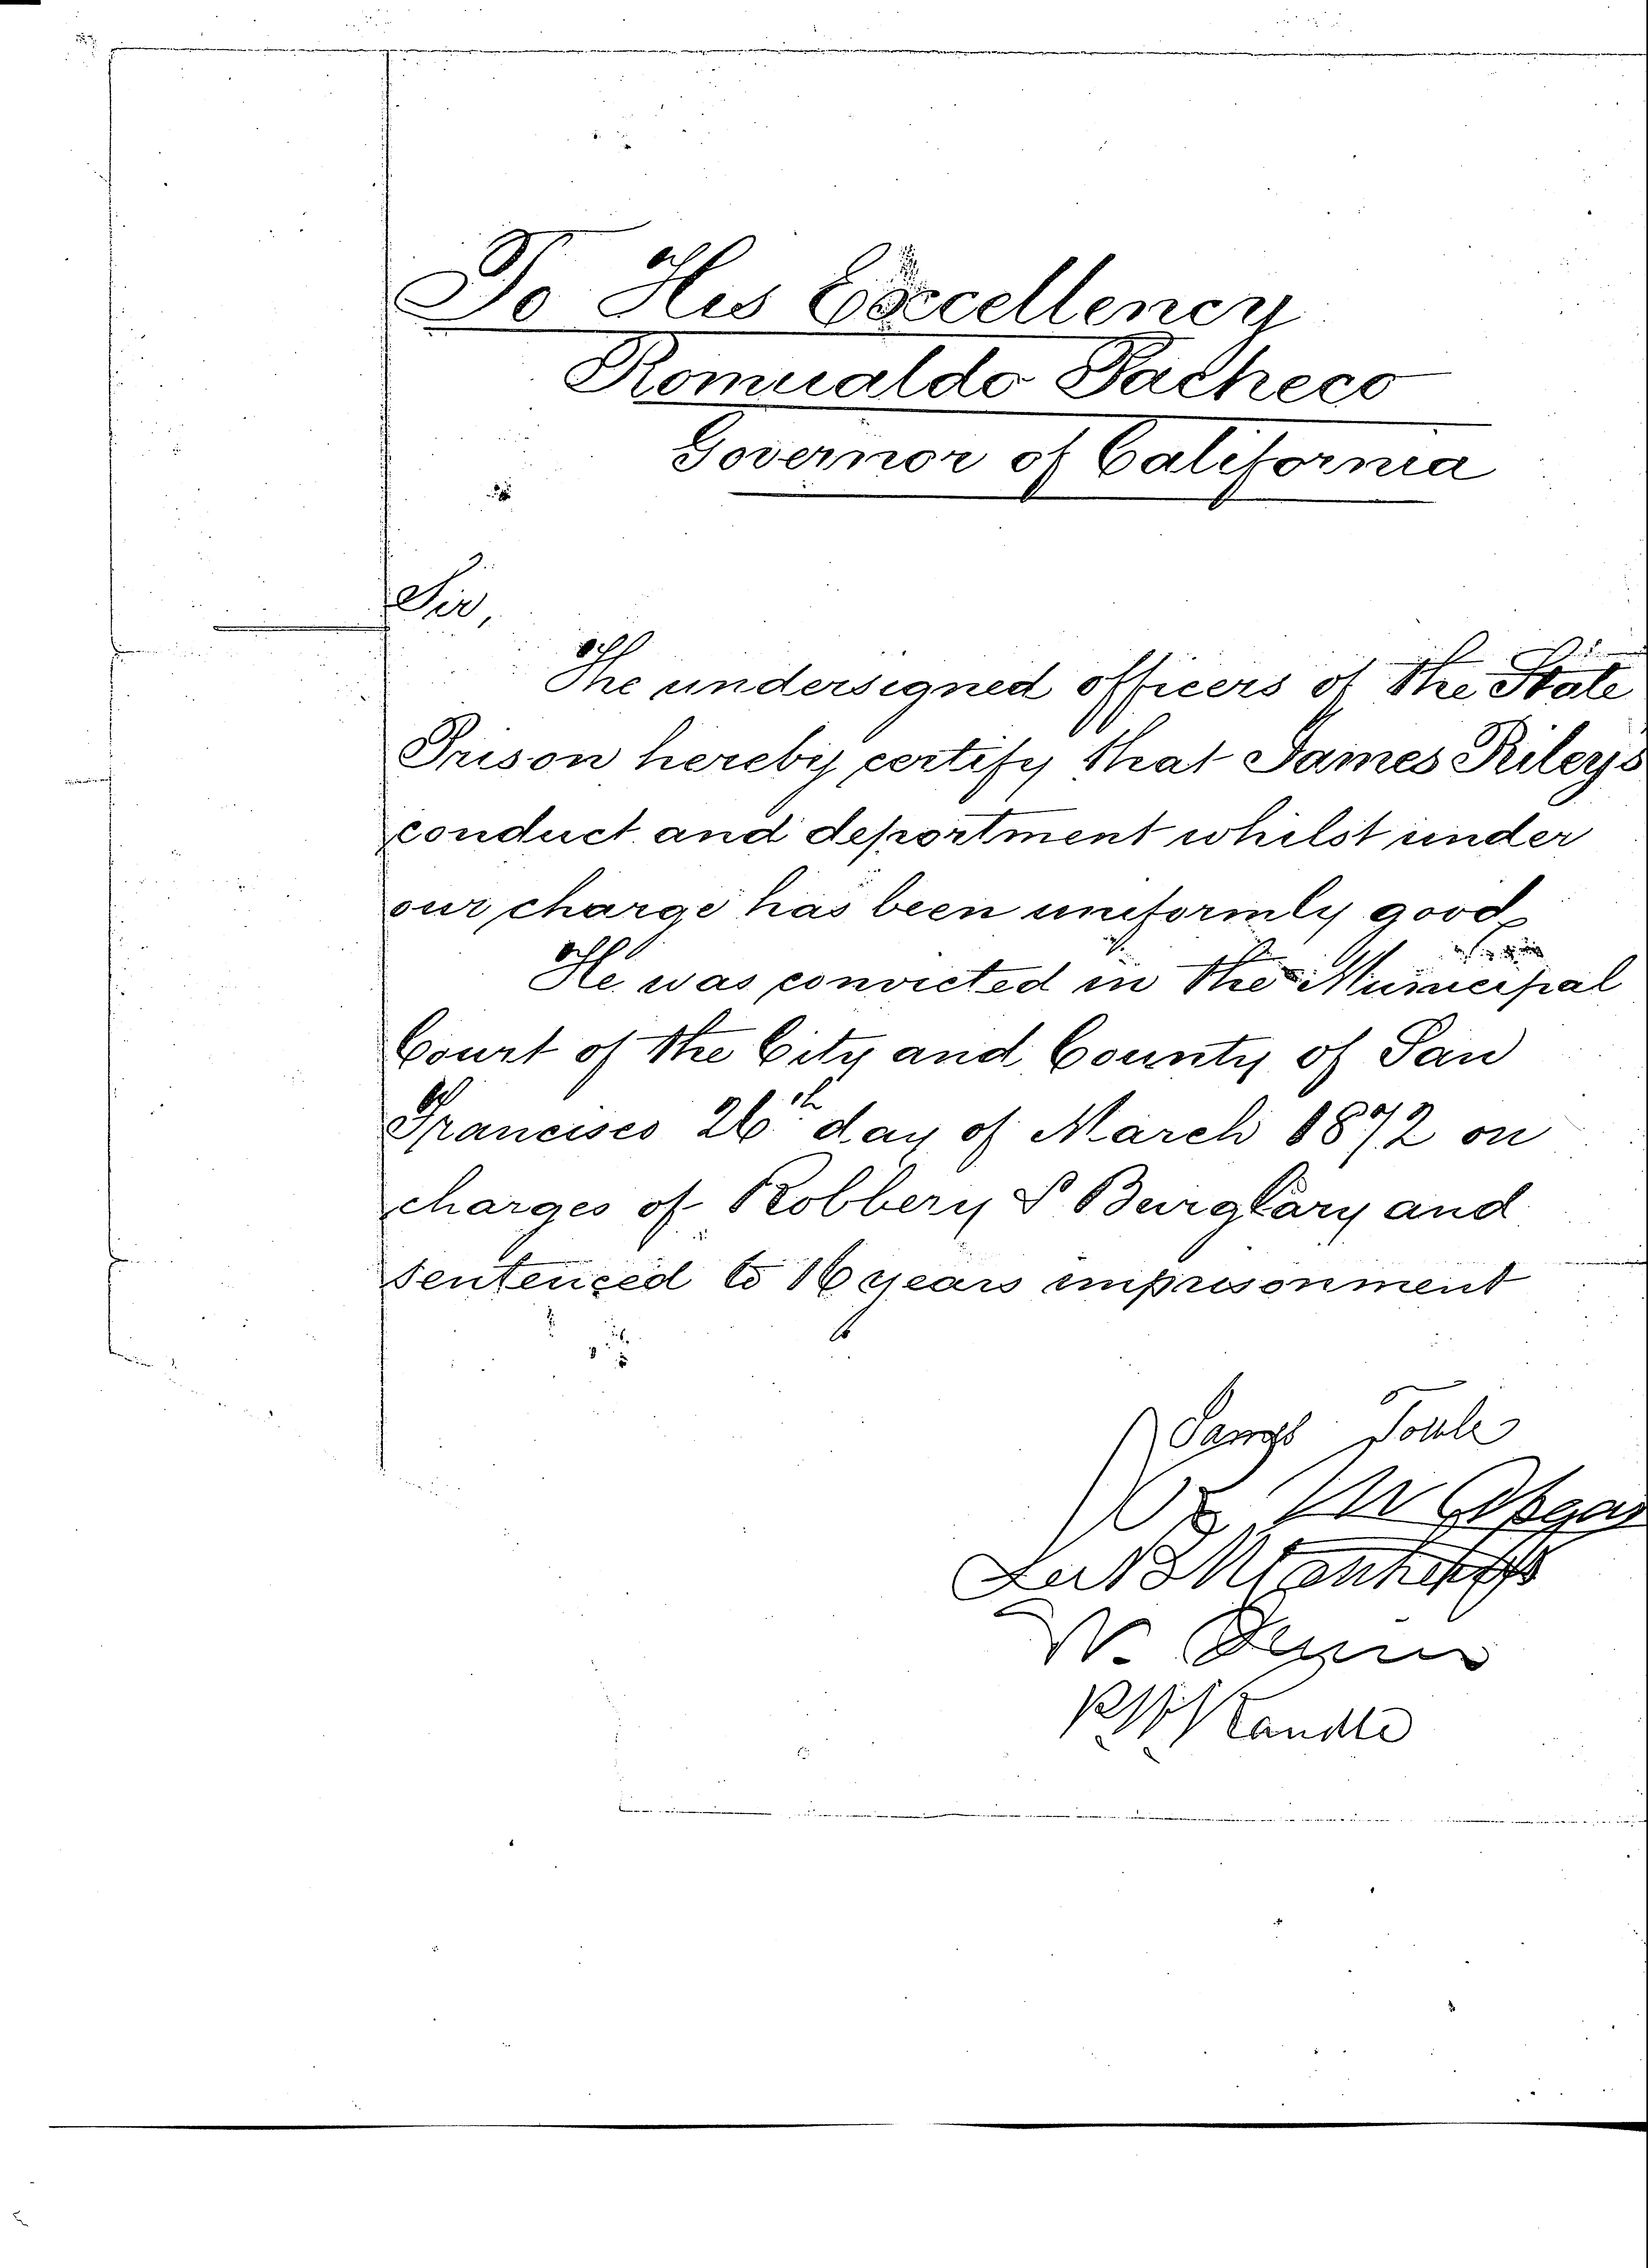 To His Excellency
Romualdo Pacheco
Governor of California
Sir,
The undersigned officers of the State
Prison hereby certify that James Rileys
conduct and deportment whilst under
our charge has been uniformly good
He was convicted in the Municipal
Court of the City and County of San
Francisco 26th day of March 1872 on
charges of Robbery & Burglary and
sentenced to 16 years imprisonment
James Towle
W Apgar
W.